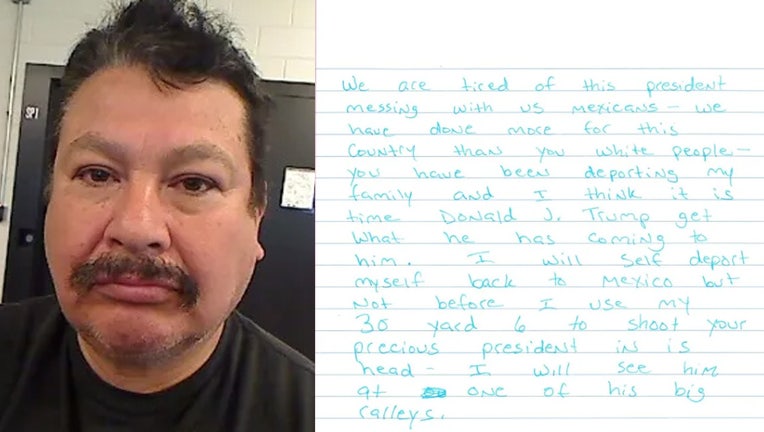 SPI
We are tired of this president
messing with us mexicans - we
have done more for this
country than you white people -
you have been deporting my
family and I think it is
time Donald J. Trump get
what he has coming to
him. I will self deport
myself back to mexico but
not before I use my
30 yard 6 to shoot your
precious president in is
head - I will see him
at one of his big
ralleys.